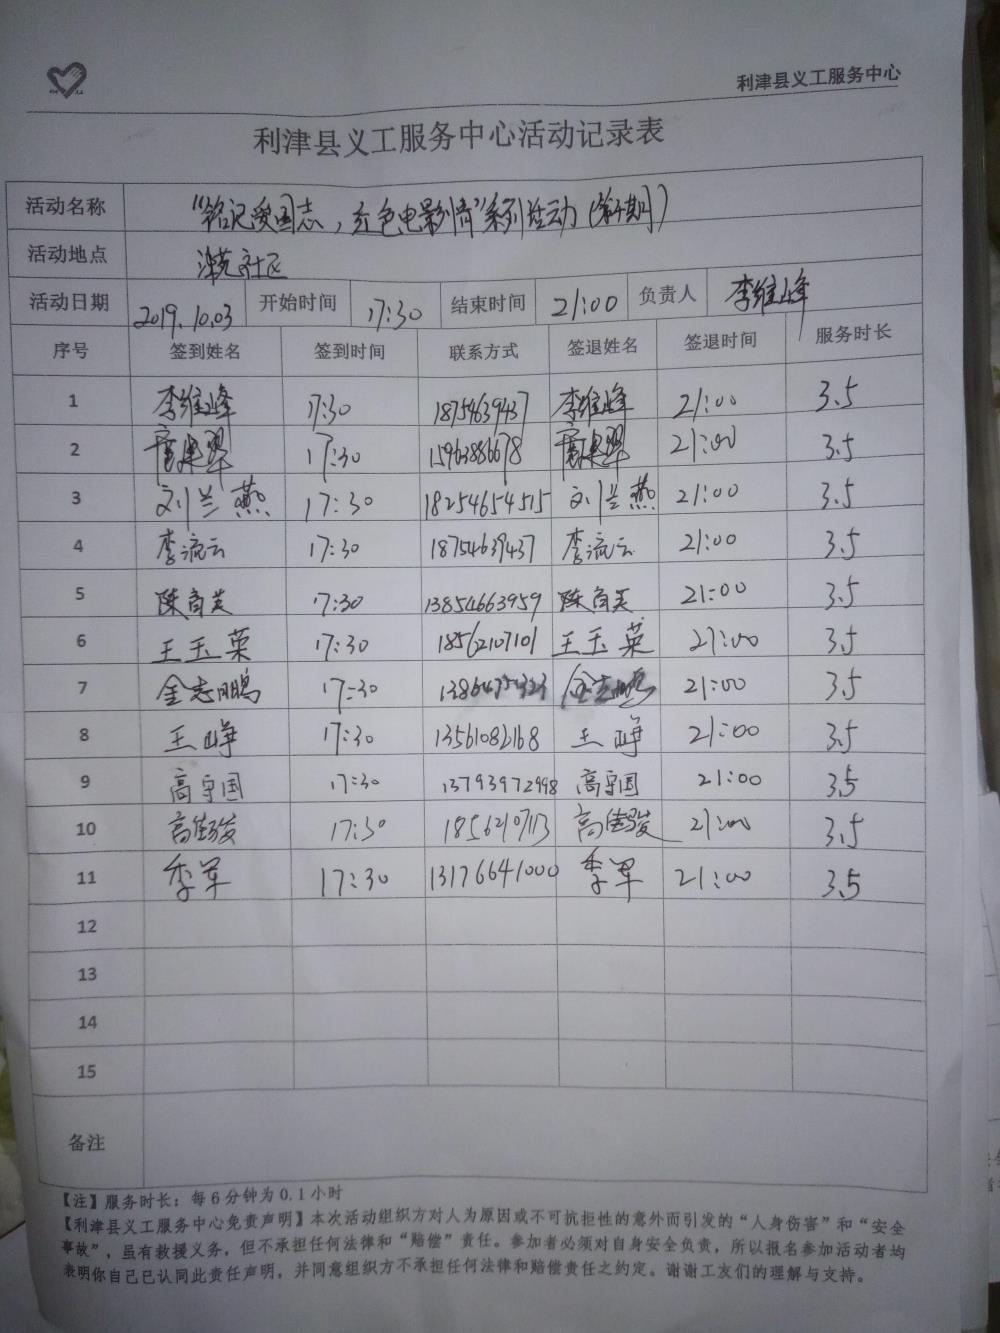 利津县义工服务中心
利津县义工服务中心活动记录表
活动名称 “铭记爱国志,红色电影情”系列活动(第期)
活动地点 津苑社区
活动日期 2019.10.03 开始时间 17:30 结束时间 21:00 负责人 李维峰
序号 签到姓名 签到时间 联系方式 签退姓名 签退时间 服务时长
1 李维峰 17:30 18754639437 李维峰 21:00 3.5
2 17:30 15963886678 21:00 3.5
3 刘兰燕 17:30 18254654515 刘兰燕 21:00 3.5
4 李流云 17:30 18754639437 李流云 21:00 3.5
5 陈 17:30 13854663959 陈 21:00 3.5
6 王玉荣 17:30 18562107101 王玉英 21:00 3.5
7 金志鹏 17:30 金志鹏 21:00 3.5
8 王峥 17:30 13561082168 王峥 21:00 3.5
9 高守国 17:30 13793972998 高守国 21:00 3.5
10 高骏 17:30 18562107113 高骏 21:00 3.5
11 季军 17:30 13176641000 季军 21:00 3.5
12
13
14
15
备注
【注】服务时长:每6分钟为0.1小时
【利津县义工服务中心免责声明】本次活动组织方对人为原因或不可抗拒性的意外而引发的“人身伤害”和“安全
事故”,虽有救援义务,但不承担任何法律和“赔偿”责任。参加者必须对自身安全负责,所以报名参加活动者均
表明你自己已认同此责任声明,并同意组织方不承担任何法律和赔偿责任之约定。谢谢工友们的理解与支持。